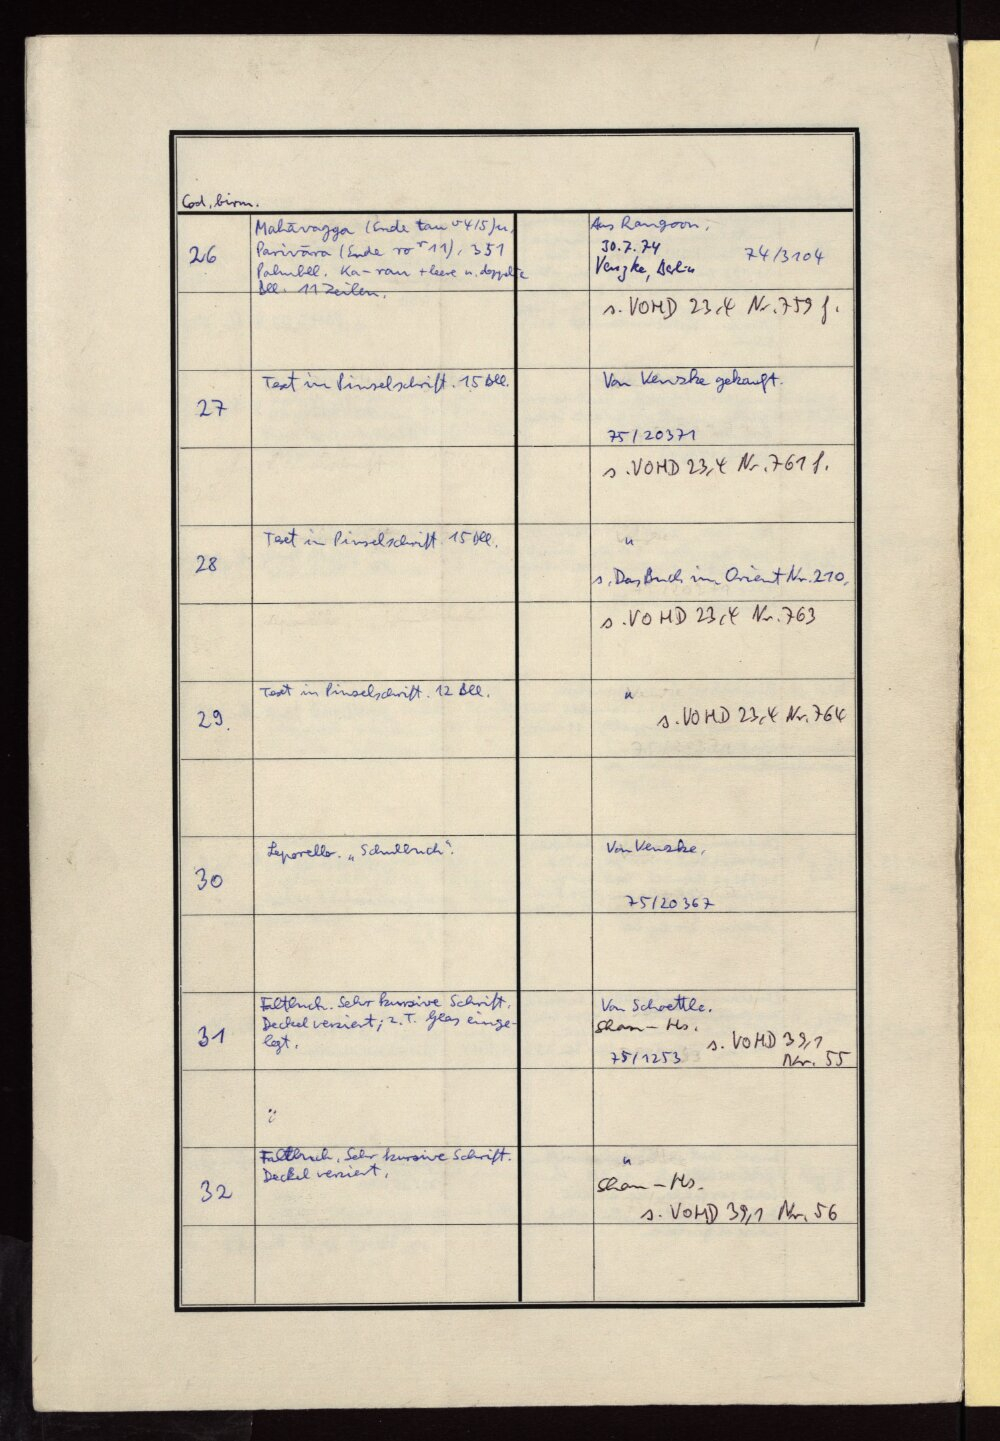 Cod. birm.
26
Mahāvagga (Ende tau v 4/5) u.
Parivāra (Ende ro r 11). 351
Palmbll. Ka-rau + leere u. doppelte
Bll. 11 Zeilen.
Aus Rangoon.
30.7.74
Venzke, Berlin
74/3104
s. VOHD 23,4 Nr. 759 f.
27
Text in Pinselschrift. 15 Bll.
Von Venzke gekauft.
75/20371
s. VOHD 23,4 Nr. 761 f.
28
Text in Pinselschrift. 15 Bll.
"
s. Das Buch im Orient Nr. 210.
s. VOHD 23,4 Nr. 763
29.
Text in Pinselschrift. 12 Bll.
"
s. VOHD 23,4 Nr. 764
30
Leporello. „Schulbuch".
Von Venzke.
75/20367
31
Faltbuch. Sehr kursive Schrift.
Deckel verziert; z.T. Glas einge-
legt.
Von Schoettle.
Shan-Hs.
75/1253
s. VOHD 39,1
Nr. 55
32
Faltbuch. Sehr kursive Schrift.
Deckel verziert.
"
Shan-Hs.
s. VOHD 39,1 Nr. 56